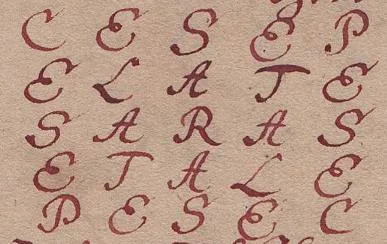 C E S E P
E L A T E
S A R A S
E T A L E
P E S E C